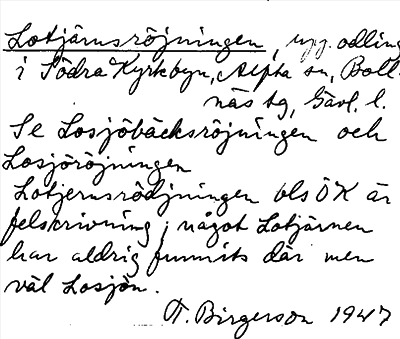 Lotjärnsröjningen, uppodling
i Södra Kyrkbyn, Alfta sn, Boll-
näs tg, Gävl. l.
Se Losjöbäcksröjningen och
Losjöröjningen
Lotjernsrödjningen hls ÖK är
felskrivning; något Lotjärnen
har aldrig funnits där men
väl Losjön.
T. Birgerson 1947